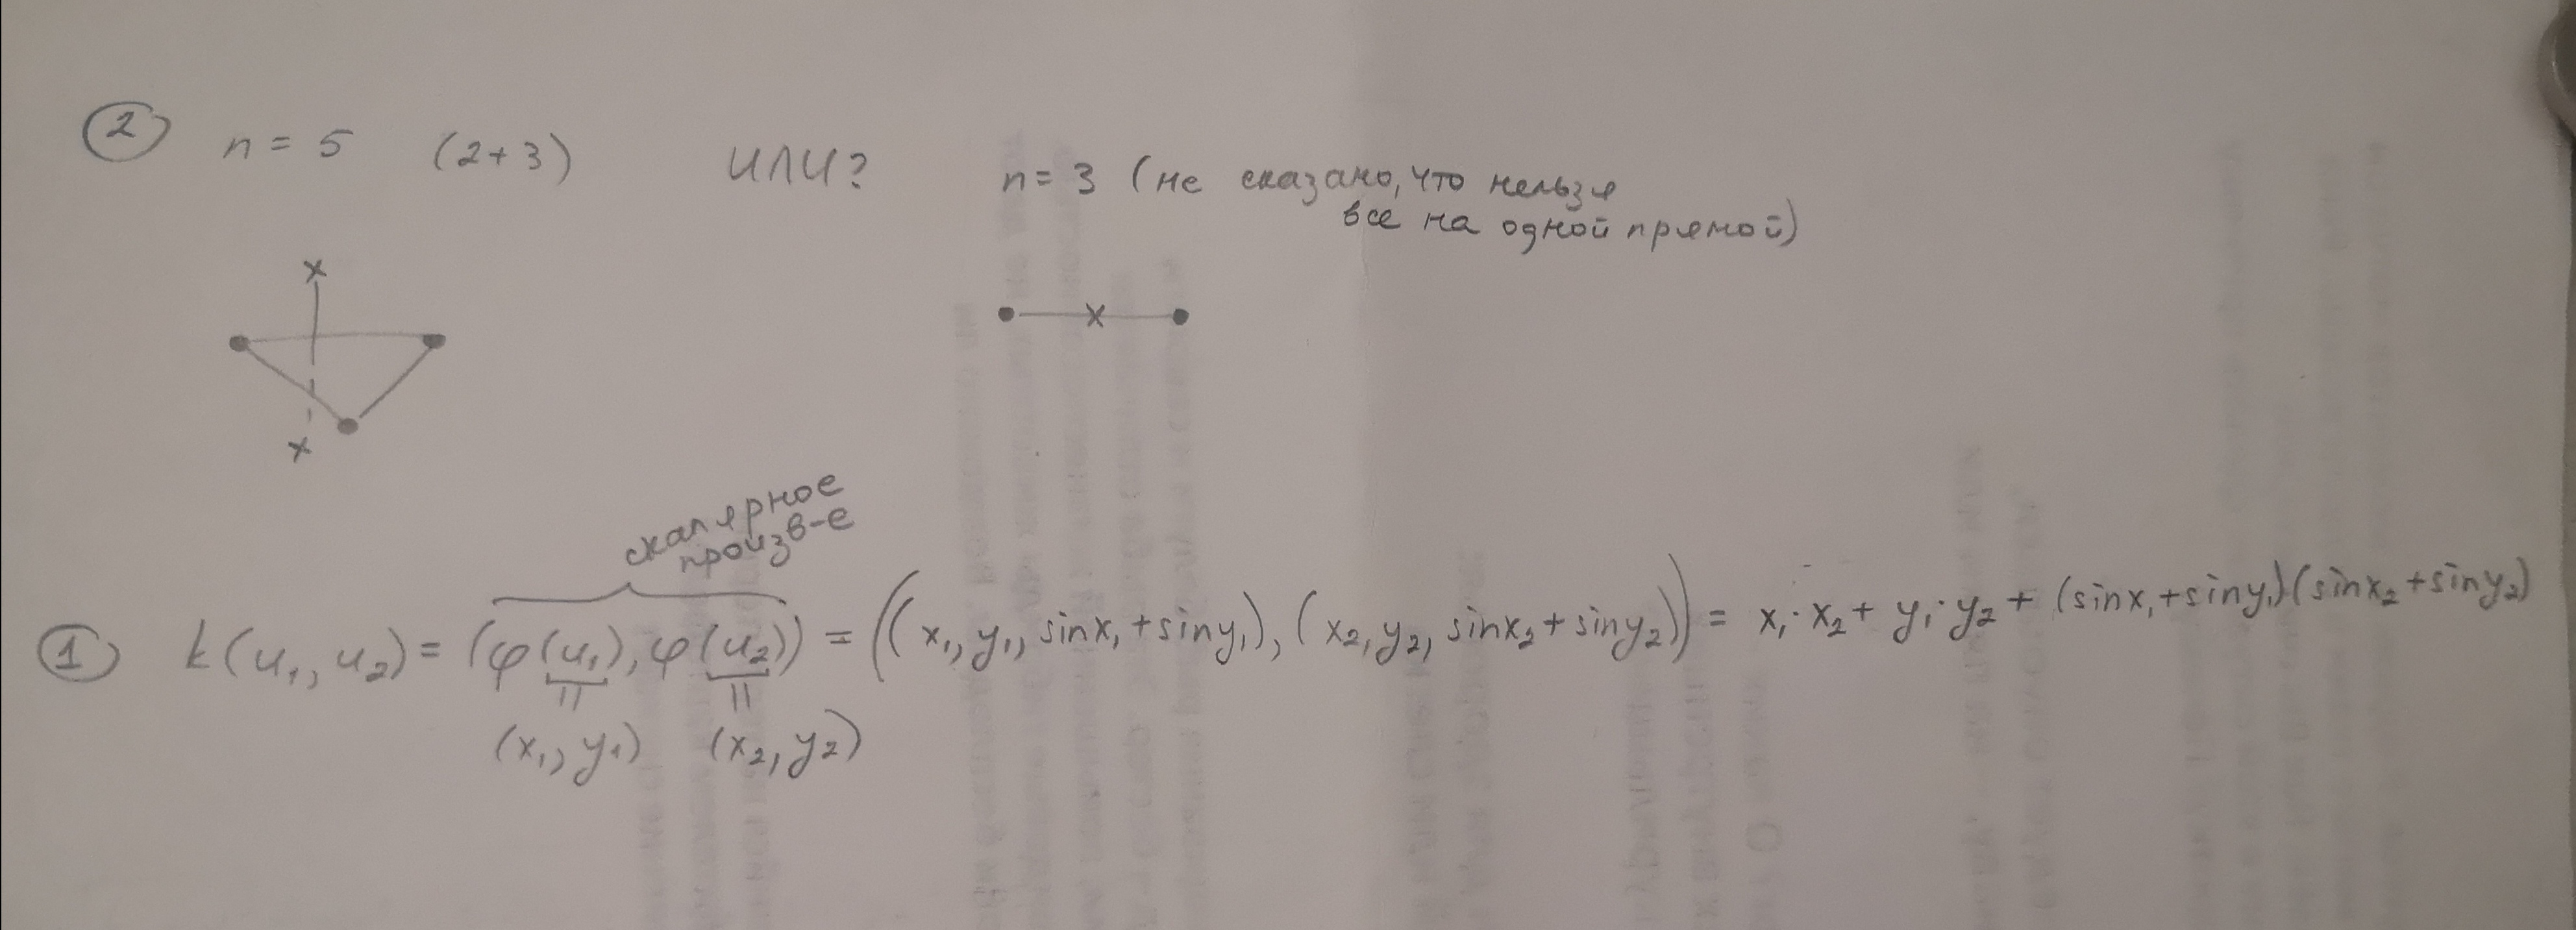 ② n = 5 (2+3) ИЛИ? n = 3 (не сказано, что нельзя
все на одной прямой)
x
x
x
скалярное
произв-е
① k(u₁, u₂) = (φ(u₁), φ(u₂)) = ((x₁, y₁, sinx₁ + siny₁), (x₂, y₂, sinx₂ + siny₂)) = x₁·x₂ + y₁·y₂ + (sinx₁ + siny₁)(sinx₂ + siny₂)
(x₁, y₁) (x₂, y₂)